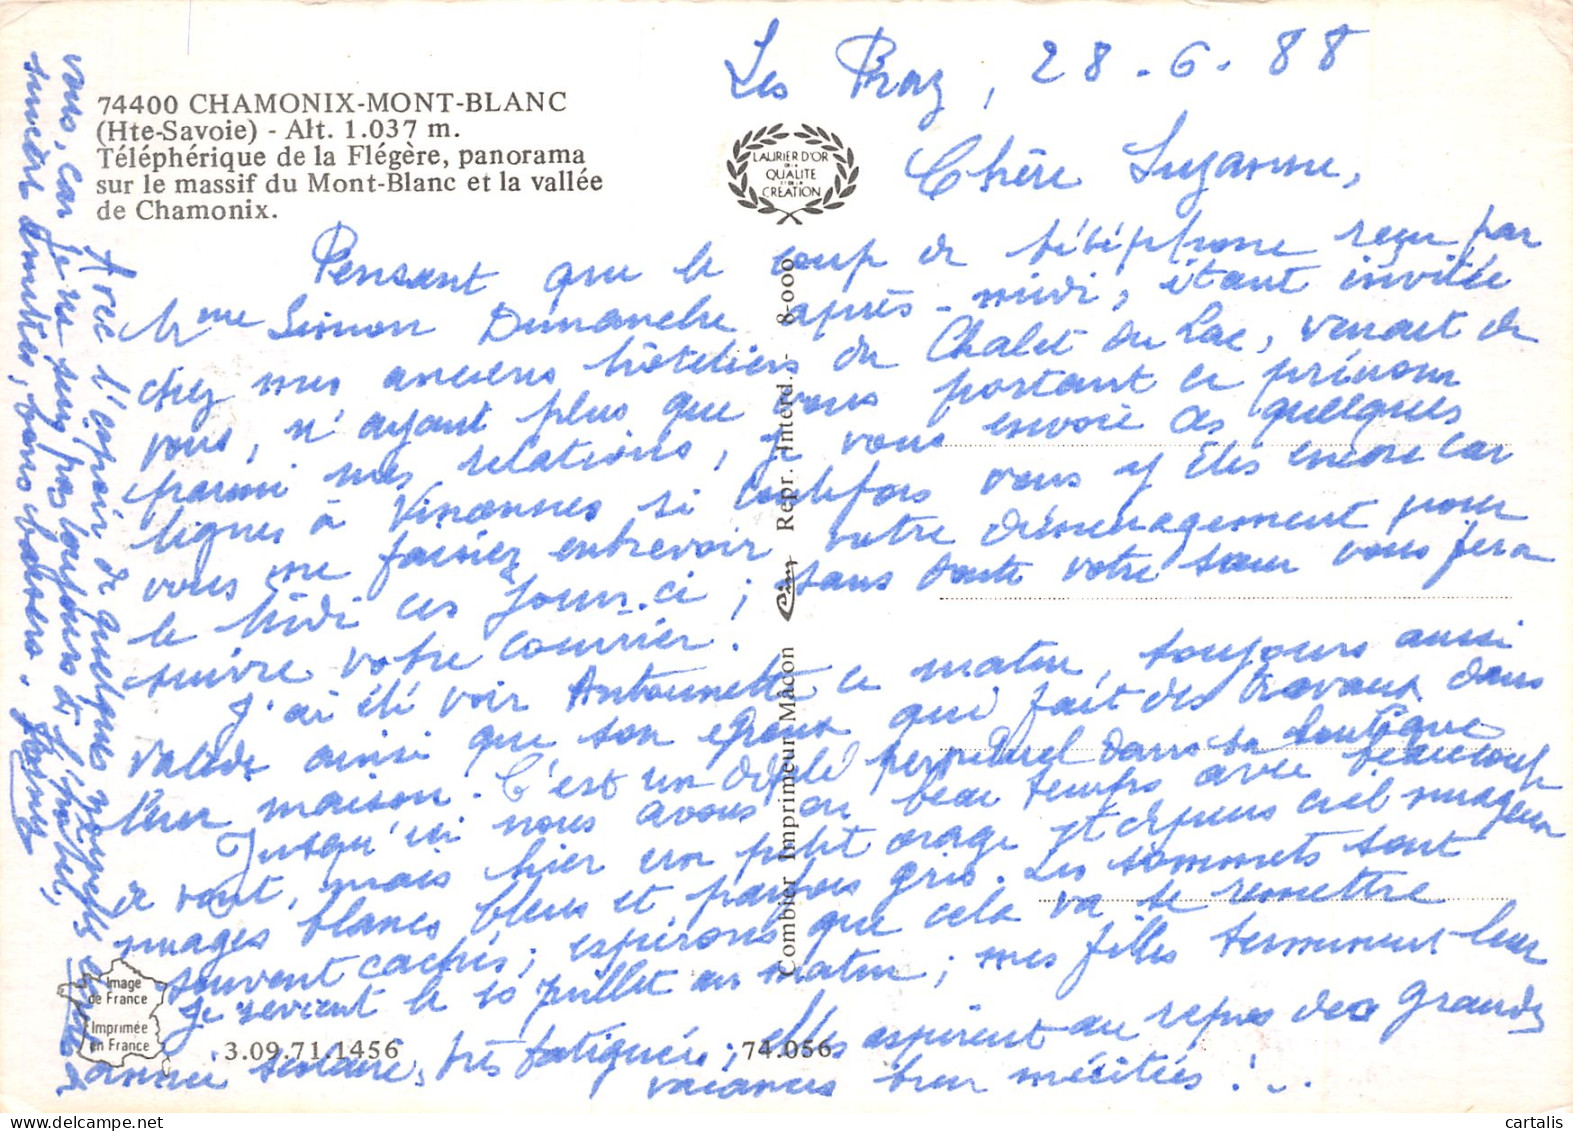 74400 CHAMONIX-MONT-BLANC
(Hte-Savoie) - Alt. 1.037 m.
Téléphérique de la Flégère, panorama
sur le massif du Mont-Blanc et la vallée
de Chamonix.
LAURIER D'OR
DE LA
QUALITE
ET DE LA
CREATION
Les Praz, 28-6-88
Chère Suzanne,
Pensant que le coup de téléphone reçu par
Mme Simon Dimanche après-midi, étant invitée
chez mes anciens hôteliers du Chalet du Lac, venait de
vous, n'ayant plus que vous portant ce prénom
parmi mes relations, je vous envoie ces quelques
lignes à Vincennes si toutefois vous y êtes encore car
vous me faisiez entrevoir votre déménagement pour
le Midi ces jours-ci ; sans doute votre sœur vous fera
suivre votre courrier.
J'ai été voir Antoinette ce matin, toujours aussi
valide ainsi que son époux qui fait des travaux dans
leur maison. C'est un défilé perpétuel dans sa boutique
Jusqu'ici nous avons eu beau temps avec beaucoup
de vent, mais hier un petit orage et depuis ciel nuageux
nuages blancs bleus et parfois gris. Les sommets sont
souvent cachés ; espérons que cela va se remettre
Je reviens le 10 Juillet au matin ; mes filles terminent leur
année scolaire, très fatiguées ; elles aspirent au repos des grandes
vacances bien méritées ! ..
Avec l'espoir de quelques nouvelles de
vous, car je ne suis pas toujours à l'hôtel,
sincères amitiés, bons baisers.
Combier Imprimeur Mâcon
Cim
Repr. Interd. - 8-000
Image
de France
Imprimée
en France
3.09.71.1456
74.056